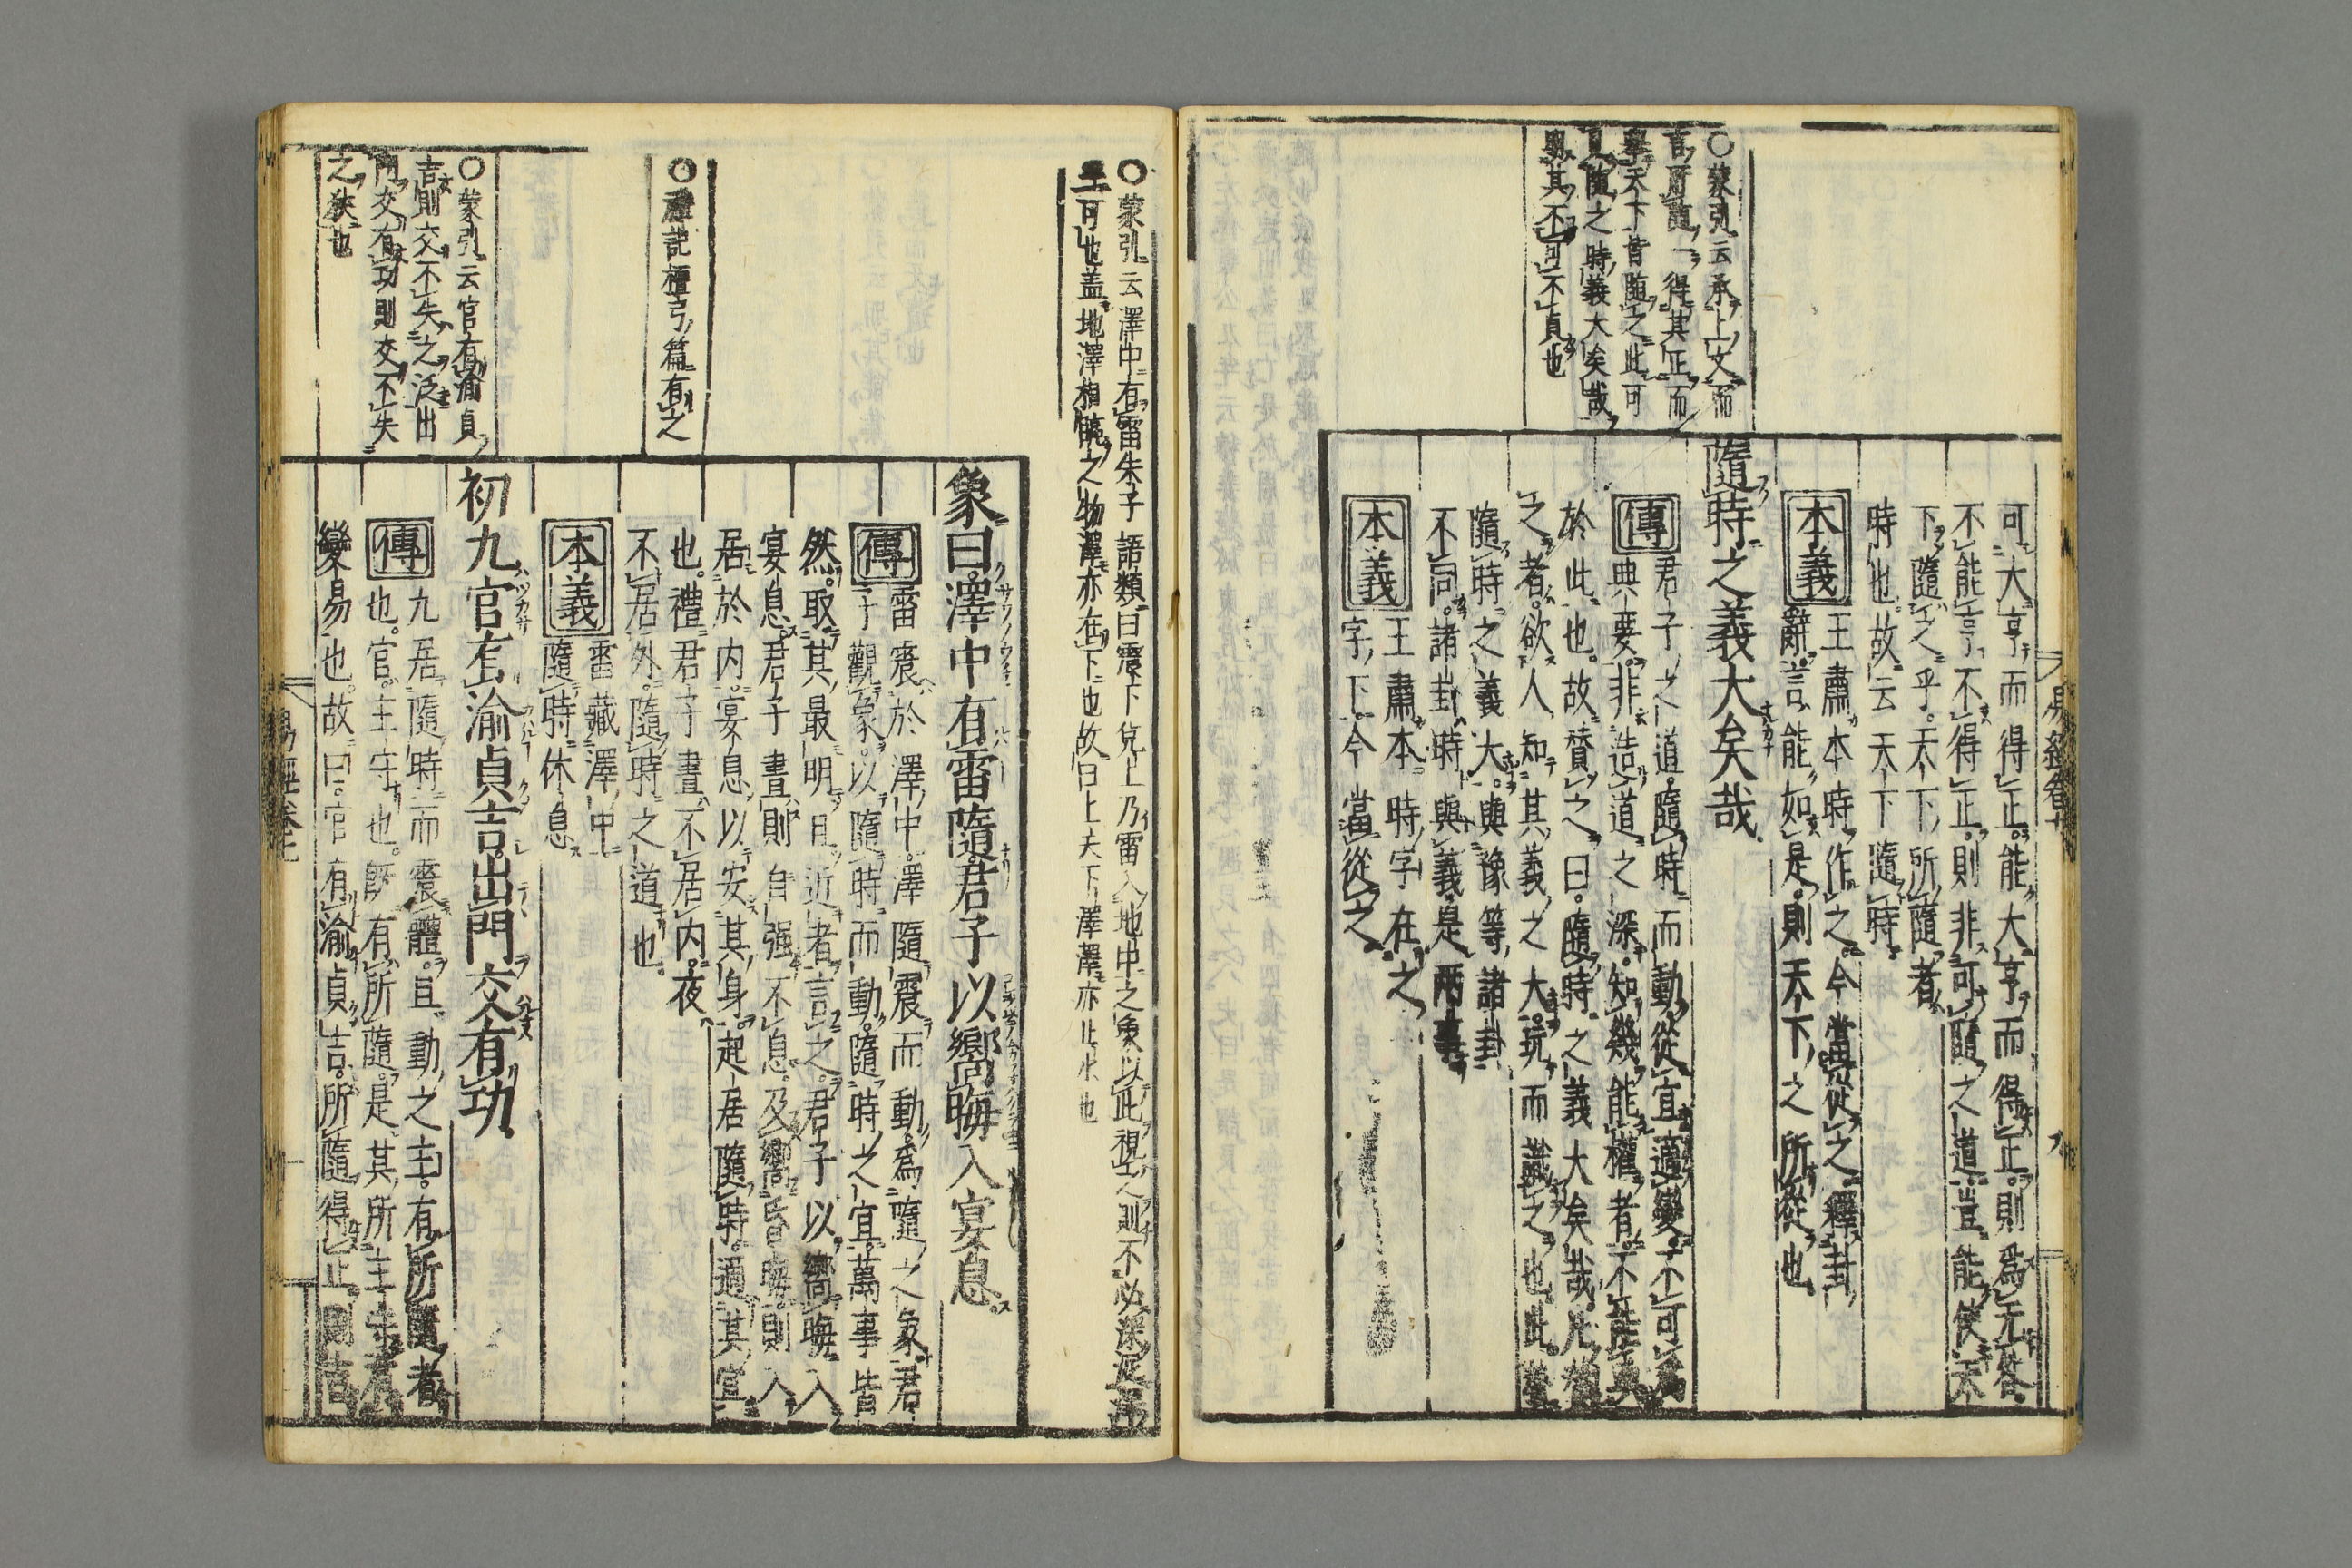 ○蒙引云承上文而
言所謂一得其正而
舉天下皆隨之此可
見隨之時義大矣哉
與其不可不貞也
可大亨而得正能大亨而得正則爲无咎
不能亨不得正則非可隨之道豈能使天
下隨之乎天下所隨者
時也故云天下隨時
本義 王肅本時作之今當從之釋卦
辭言能如是則天下之所從也
隨時之義大矣哉
傳 君子之道隨時而動從宜適變不可爲
典要非造道之深知幾能權者不能與
於此也故贊之曰隨時之義大矣哉凡贊
之者欲人知其義之大玩而識之也此贊
隨時之義大與豫等諸卦
不同諸卦時與義是兩事
本義 王肅本時字在之
字下今當從之
○蒙引云澤中有雷朱子語類曰震下兌上乃雷入地中之象以此視之則不必深泥澤
可也蓋地澤相臨之物澤亦在下也故曰上天下澤澤亦止水也
○禮記檀弓篇有之
○蒙引云官有渝貞
吉則交不失之泛出
門交有功則交不失
之狹也
象曰澤中有雷隨君子以嚮晦入宴息
傳 雷震於澤中澤隨震而動爲隨之象君
子觀象以隨時而動隨時之宜萬事皆
然取其最明且近者言之君子以嚮晦入
宴息君子晝則自强不息及嚮昏晦則入
居於内宴息以安其身起居隨時適其宜
也禮君子晝不居内夜
不居外隨時之道也
本義 雷藏澤中
隨時休息
初九官有渝貞吉出門交有功
傳 九居隨時而震體且動之主有所隨者
也官主守也既有所隨是其所主守有
變易也故曰官有渝貞吉所隨得正則吉